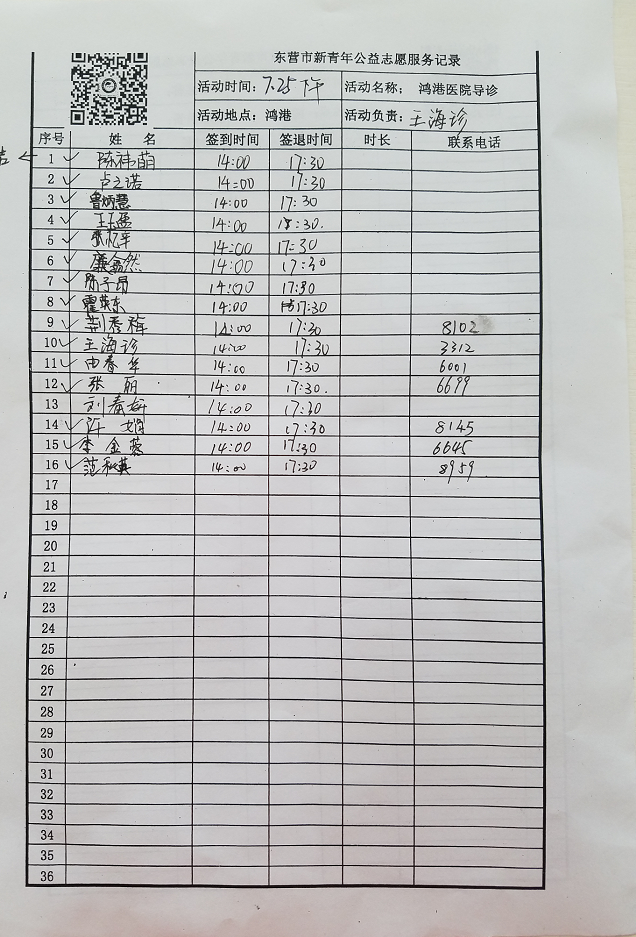 东营市新青年公益志愿服务记录
活动时间：7.25下午 活动名称：鸿港医院导诊
活动地点：鸿港 活动负责：王海诊
序号 姓 名 签到时间 签退时间 时长 联系电话
1 陈祎萌 14:00 17:30
2 卢之诺 14:00 17:30
3 曾炳慧 14:00 17:30
4 王玉盈 14:00 17:30.
5 张忆军 14:00 17:30
6 廉鑫然 14:00 17:30
7 陈子昂 14:00 17:30
8 霍英东 14:00 17:30
9 荆秀梅 14:00 17:30 8102
10 王海诊 14:00 17:30 3312
11 由春年 14:00 17:30 6001
12 张 丽 14:00 17:30. 6699
13 刘春妍 14:00 17:30
14 许 娟 14:00 17:30 8145
15 李金蓉 14:00 17:30 6645
16 范秋英 14:00 17:30 8959
17
18
19
20
21
22
23
24
25
26
27
28
29
30
31
32
33
34
35
36